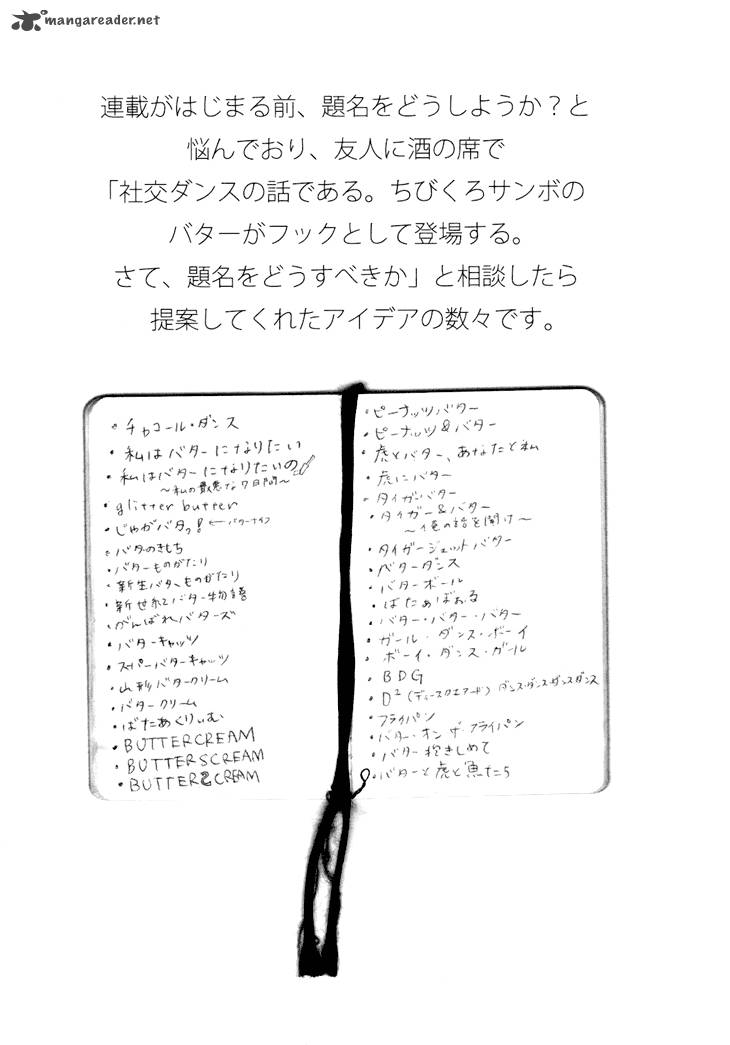 mangareader.net
連載がはじまる前、題名をどうしようか？と
悩んでおり、友人に酒の席で
「社交ダンスの話である。ちびくろサンボの
バターがフックとして登場する。
さて、題名をどうすべきか」と相談したら
提案してくれたアイデアの数々です。
・チャコール・ダンス
・私はバターになりたい
・私はバターになりたいの
〜私の最悪な7日間〜
・glitter butter
・じゃがバタっ! ←バターナイフ
・バタのきもち
・バターものがたり
・新生バターものがたり
・新世紀バター物語
・がんばれバターズ
・バターキャッツ
・スーパーバターキャッツ
・山形バタークリーム
・バタークリーム
・ばたあくりぃむ
・BUTTERCREAM
・BUTTERSCREAM
・BUTTER2CREAM
・ピーナッツバター
・ピーナッツ&バター
・虎とバター、あなたと私
・虎にバター
・タイガーバター
・タイガー&バター
〜俺の話を聞け〜
・タイガージェットバター
・ベターダンス
・バターボール
・ばたあぼぉる
・バター・バター・バター
・ガール・ダンス・ボーイ
・ボーイ・ダンス・ガール
・BDG
・D²(ディースクエアード) ダンス・ダンスダンスダンス
・フライパン
・バター・オン ザ フライパン
・バター抱きしめて
・バターと虎と魚たち